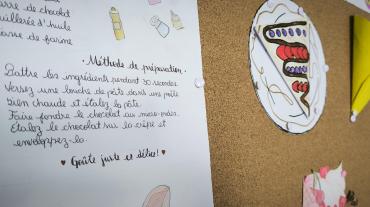 arre de chocolat
uillerée d'huile
arre de farine
Méthode de préparation
Battre les ingrédients pendant 30 secondes.
Versez une louche de pâte dans une poêle
bien chaude et étalez la pâte.
Faire fondre le chocolat au micro-ondes.
Étalez le chocolat sur la crêpe et
enveloppez-la.
♥ Goûte juste et délice! ♥